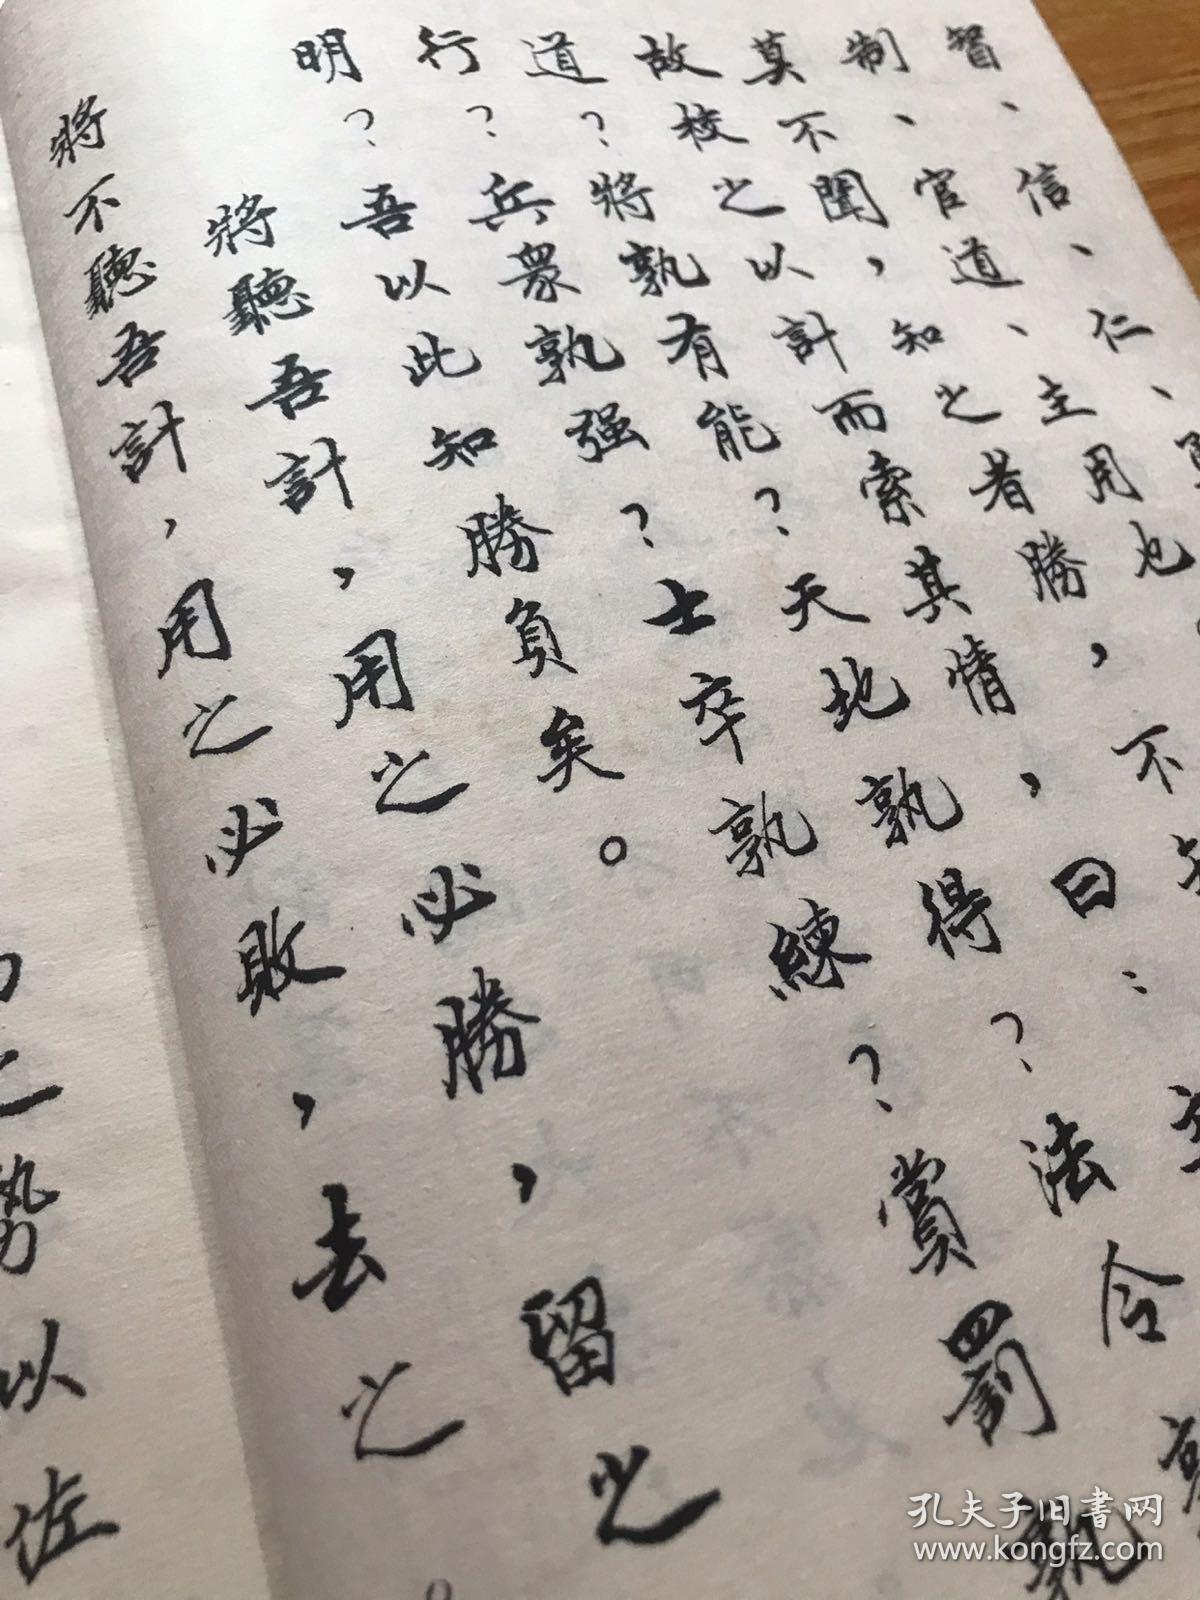 智、信、仁、
制、官道、主用也。
莫不聞，知之者勝，不
故校之以計而索其情，曰：
道？將孰有能？天地孰得？法令
行？兵衆孰强？士卒孰練？賞罰孰
明？吾以此知勝負矣。
將聽吾計，用之必勝，留之
將不聽吾計，用之必敗，去之
勢以佐
孔夫子旧書网
www.kongfz.com